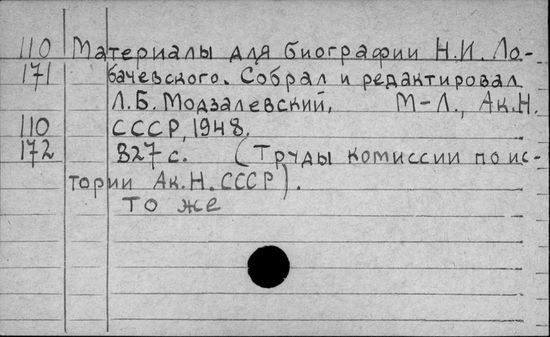 110 Материалы для биографии Н.И. Ло-
171 бачевского. Собрал и редактировал
Л.Б. Модзалевский, М-Л., Ак.Н.
110 СССР, 1948.
172 827 с. (Труды комиссии по ис-
тории Ак.Н. СССР).
то же